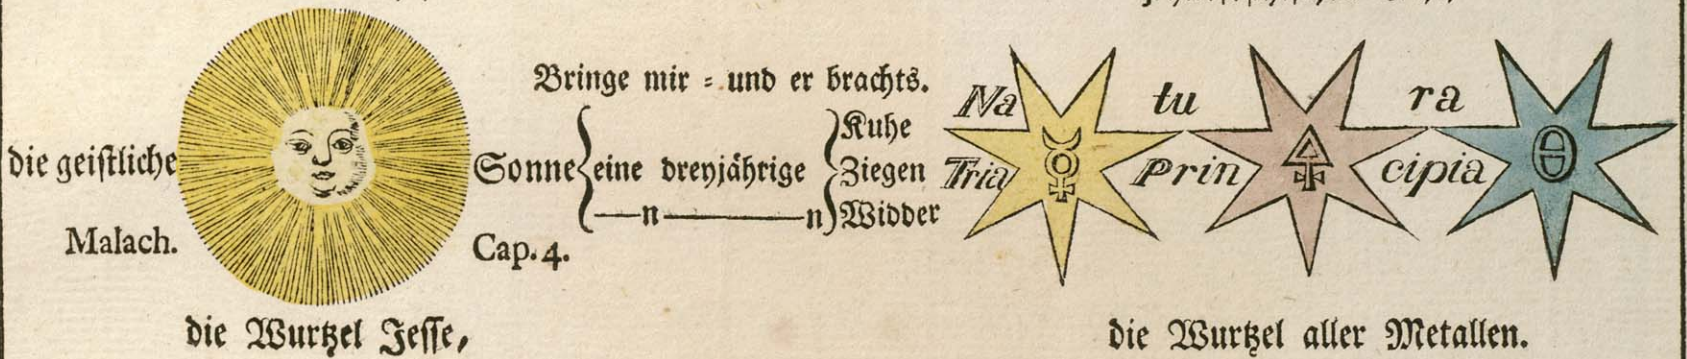 Bringe mir = und er brachts.
die geistliche Sonne { eine dreyjährige } Kuhe
Ziegen
—n———n) Widder
Malach. Cap. 4.
Na tu ra
Tria Prin cipia
die Wurtzel Jesse,
die Wurtzel aller Metallen.